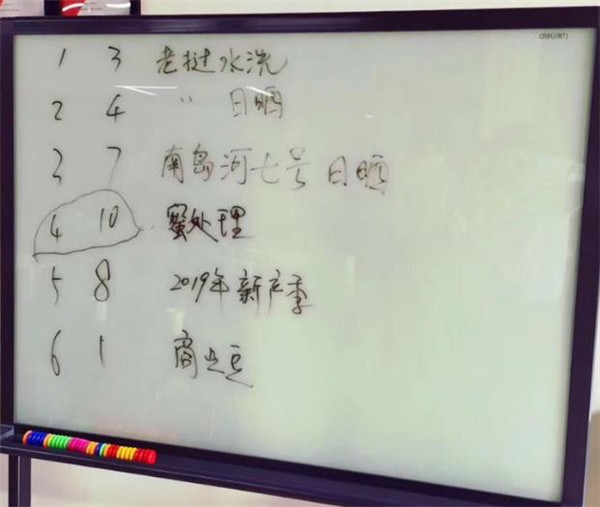 1 3 老挝水洗
2 4 〃 日晒
3 7 南岛河七号 日晒
4 10 蜜处理
5 8 2019年新产季
6 1 商业豆